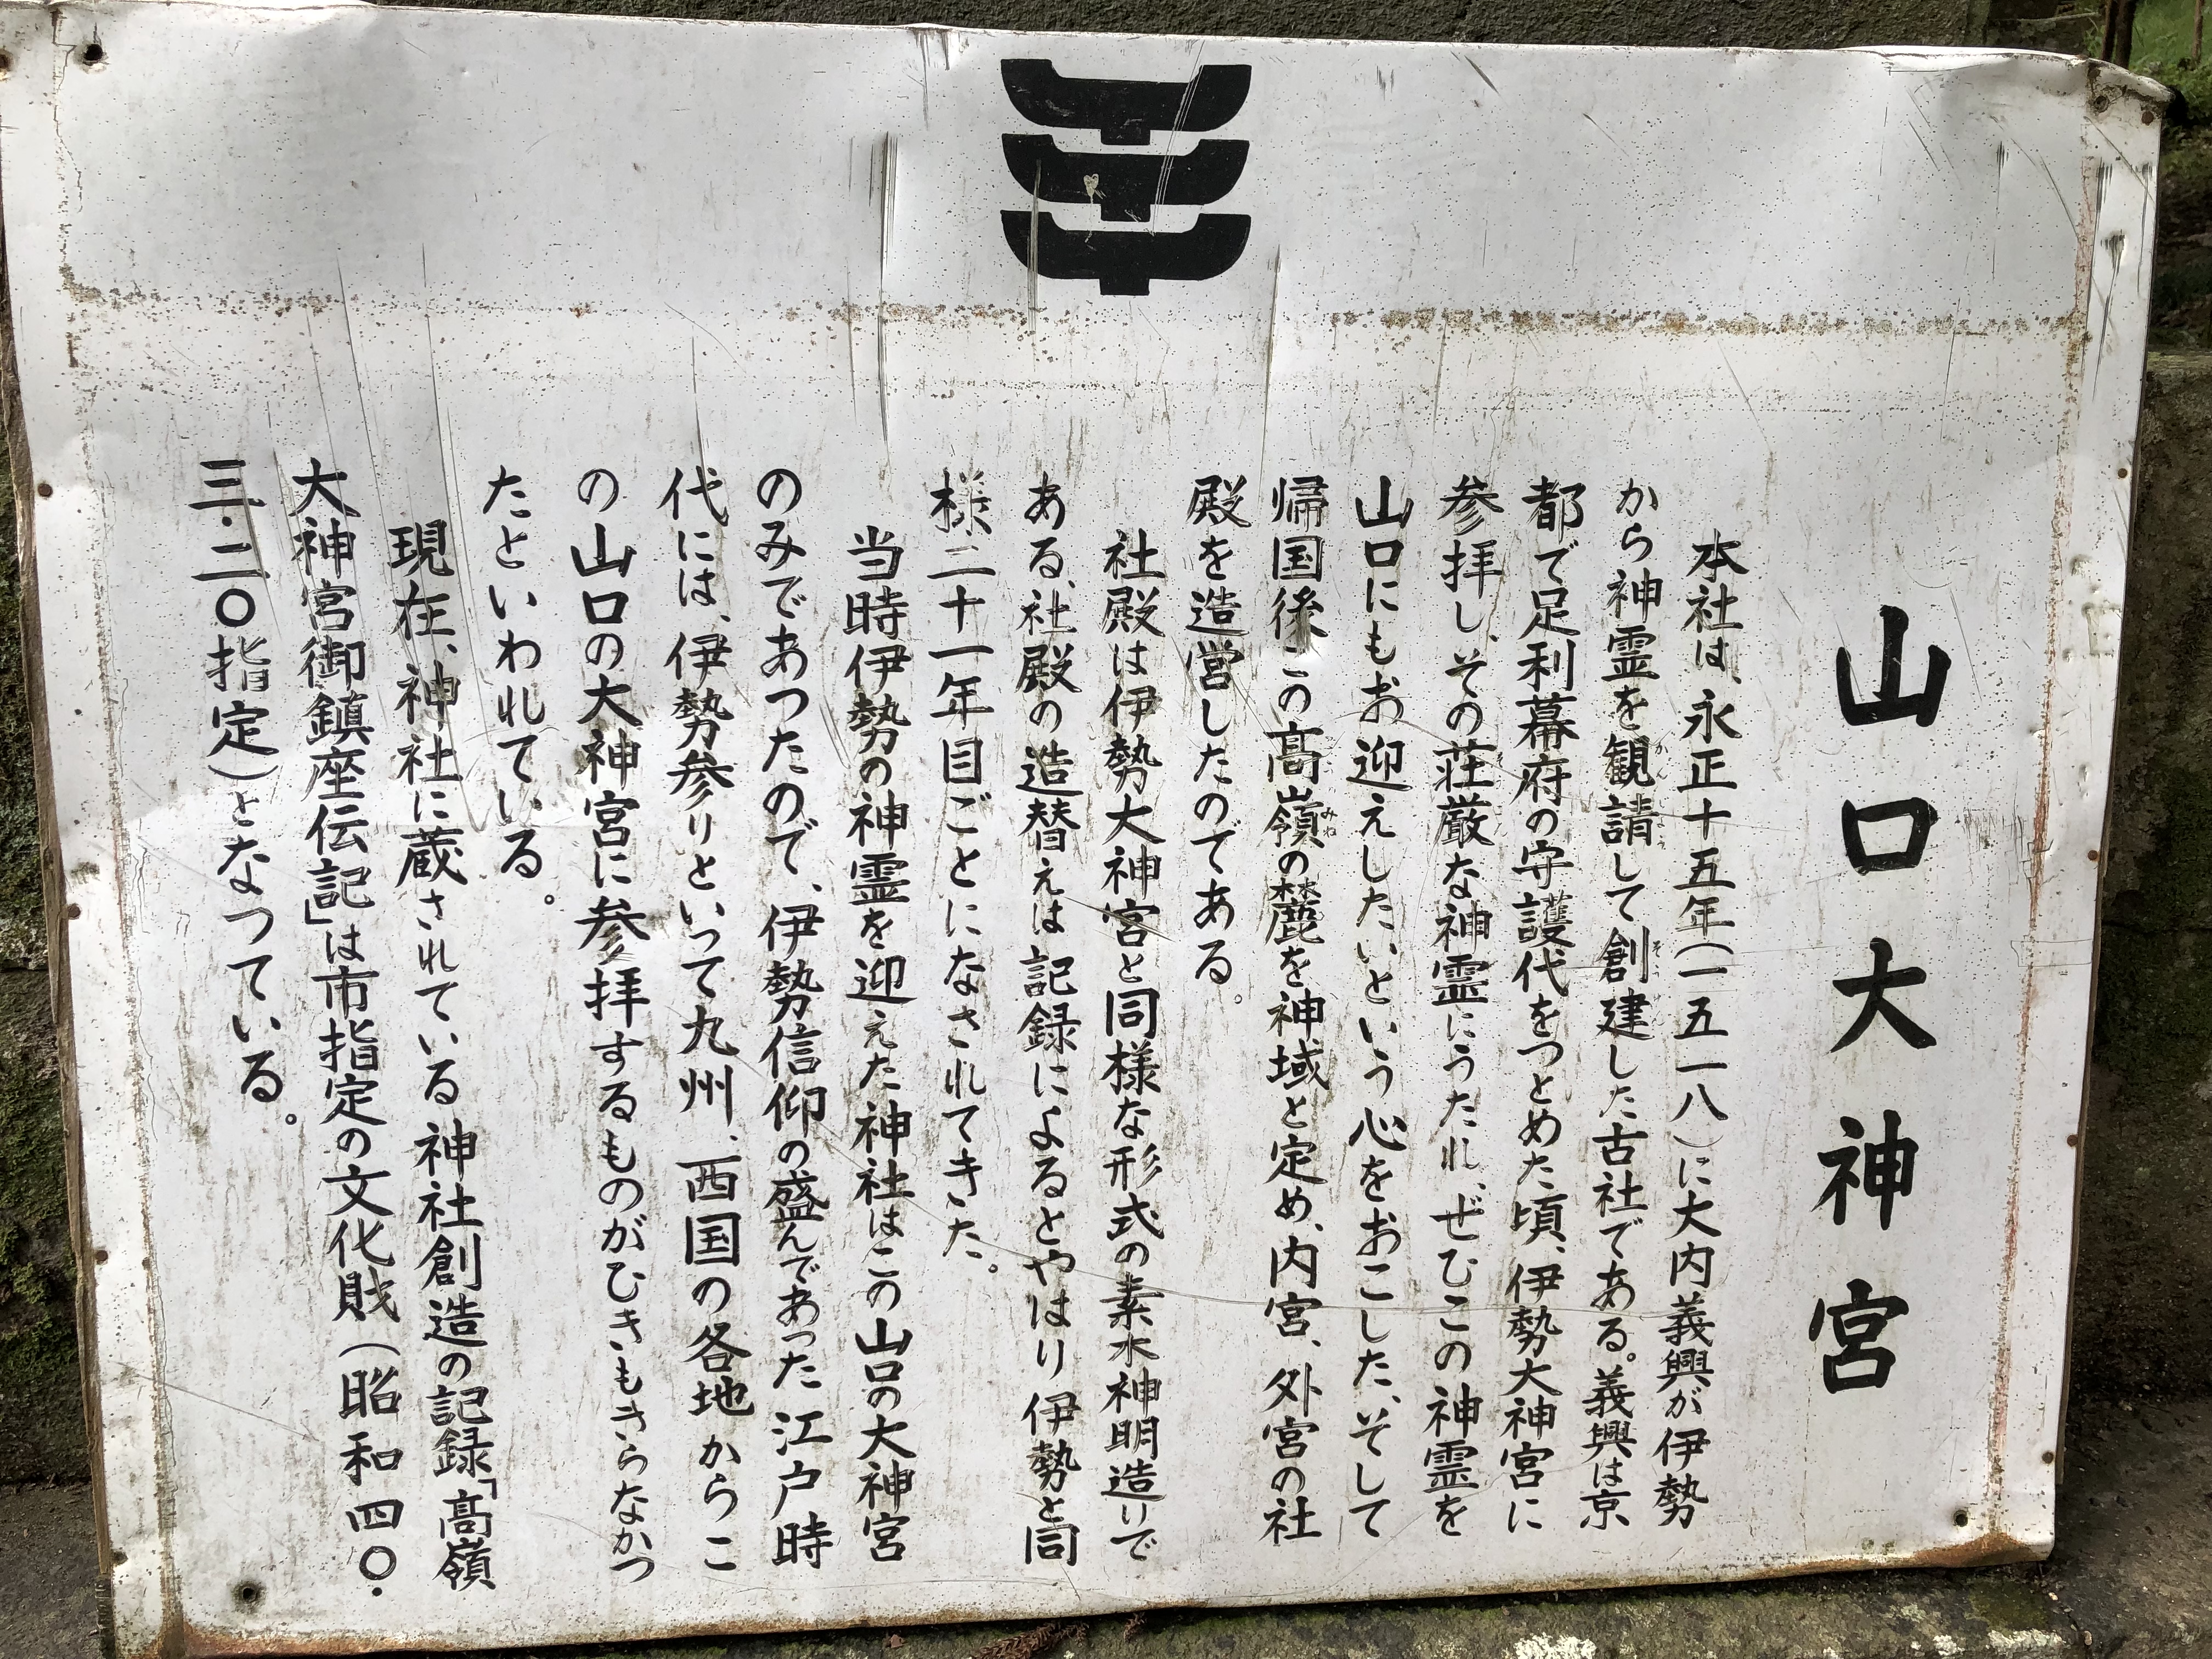 山口大神宮
本社は、永正十五年(一五一八)に大内義興が伊勢
から神霊を観請して創建した古社である。義興は京
都で足利幕府の守護代をつとめた頃、伊勢大神宮に
参拝し、その荘厳な神霊にうたれ、ぜひこの神霊を
山口にもお迎えしたいという心をおこした、そして
帰国後この高嶺の麓を神域と定め、内宮、外宮の社
殿を造営したのである。
社殿は伊勢大神宮と同様な形式の素木神明造りで
ある、社殿の造替えは記録によるとやはり伊勢と同
様、二十一年目ごとになされてきた。
当時伊勢の神霊を迎えた神社はこの山口の大神宮
のみであつたので、伊勢信仰の盛んであった江戸時
代には、伊勢参りといって九州、西国の各地からこ
の山口の大神宮に参拝するものがひきもきらなかつ
たといわれている。
現在、神社に蔵されている神社創造の記録「高嶺
大神宮御鎮座伝記」は市指定の文化財(昭和四〇・
三・二〇指定)となつている。